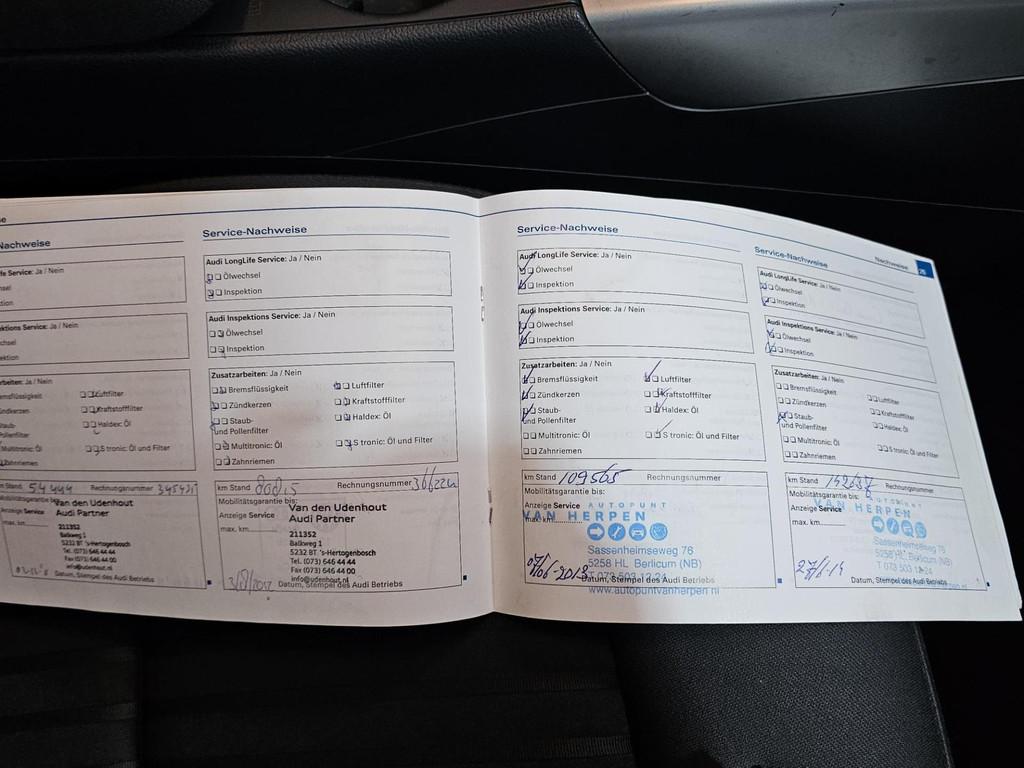 Nachweise
Service: Ja / Nein
Service: Ja / Nein
Ja / Nein
Luftfilter
Kraftstofffilter
Haldex: Öl
S tronic: Öl und Filter
Zahnriemen
Stand 54444 Rechnungsnummer
Mobilitätsgarantie bis:
Van den Udenhout
Audi Partner
Anzeige Service
max. km
211352
Balkweg 1
5232 BT 's-Hertogenbosch
Tel. (073) 646 44 44
Fax (073) 646 44 00
info@udenhout.nl
Datum, Stempel des Audi Betriebs
Service-Nachweise
Audi LongLife Service: Ja / Nein
Ölwechsel
Inspektion
Audi Inspektions Service: Ja / Nein
Ölwechsel
Inspektion
Zusatzarbeiten: Ja / Nein
Bremsflüssigkeit Luftfilter
Zündkerzen Kraftstofffilter
Staub- Haldex: Öl
und Pollenfilter
Multitronic: Öl S tronic: Öl und Filter
Zahnriemen
km Stand Rechnungsnummer
Mobilitätsgarantie bis:
Van den Udenhout
Anzeige Service
Audi Partner
max. km
211352
Balkweg 1
5232 BT 's-Hertogenbosch
Tel. (073) 646 44 44
Fax (073) 646 44 00
info@udenhout.nl
Datum, Stempel des Audi Betriebs
Service-Nachweise
Audi LongLife Service: Ja / Nein
Ölwechsel
Inspektion
Audi Inspektions Service: Ja / Nein
Ölwechsel
Inspektion
Zusatzarbeiten: Ja / Nein
Bremsflüssigkeit Luftfilter
Zündkerzen Kraftstofffilter
Staub- Haldex: Öl
und Pollenfilter
Multitronic: Öl S tronic: Öl und Filter
Zahnriemen
km Stand 109565 Rechnungsnummer
Mobilitätsgarantie bis:
AUTOPUNT
Anzeige Service
VAN HERPEN
max. km
Sassenheimseweg 76
5258 HL Berlicum (NB)
T 073 503 12 24
Datum, Stempel des Audi Betriebs
www.autopuntvanherpen.nl
Nachweise 25
Service-Nachweise
Audi LongLife Service: Ja / Nein
Ölwechsel
Inspektion
Audi Inspektions Service: Ja / Nein
Ölwechsel
Inspektion
Zusatzarbeiten: Ja / Nein
Bremsflüssigkeit Luftfilter
Zündkerzen Kraftstofffilter
Staub- Haldex: Öl
und Pollenfilter
Multitronic: Öl S tronic: Öl und Filter
Zahnriemen
km Stand Rechnungsnummer
Mobilitätsgarantie bis:
AUTOPUNT
Anzeige Service
VAN HERPEN
max. km
Sassenheimseweg 76
5258 HL Berlicum (NB)
T 073 503 12 24
27/6-19
Datum, Stempel des Audi Betriebs